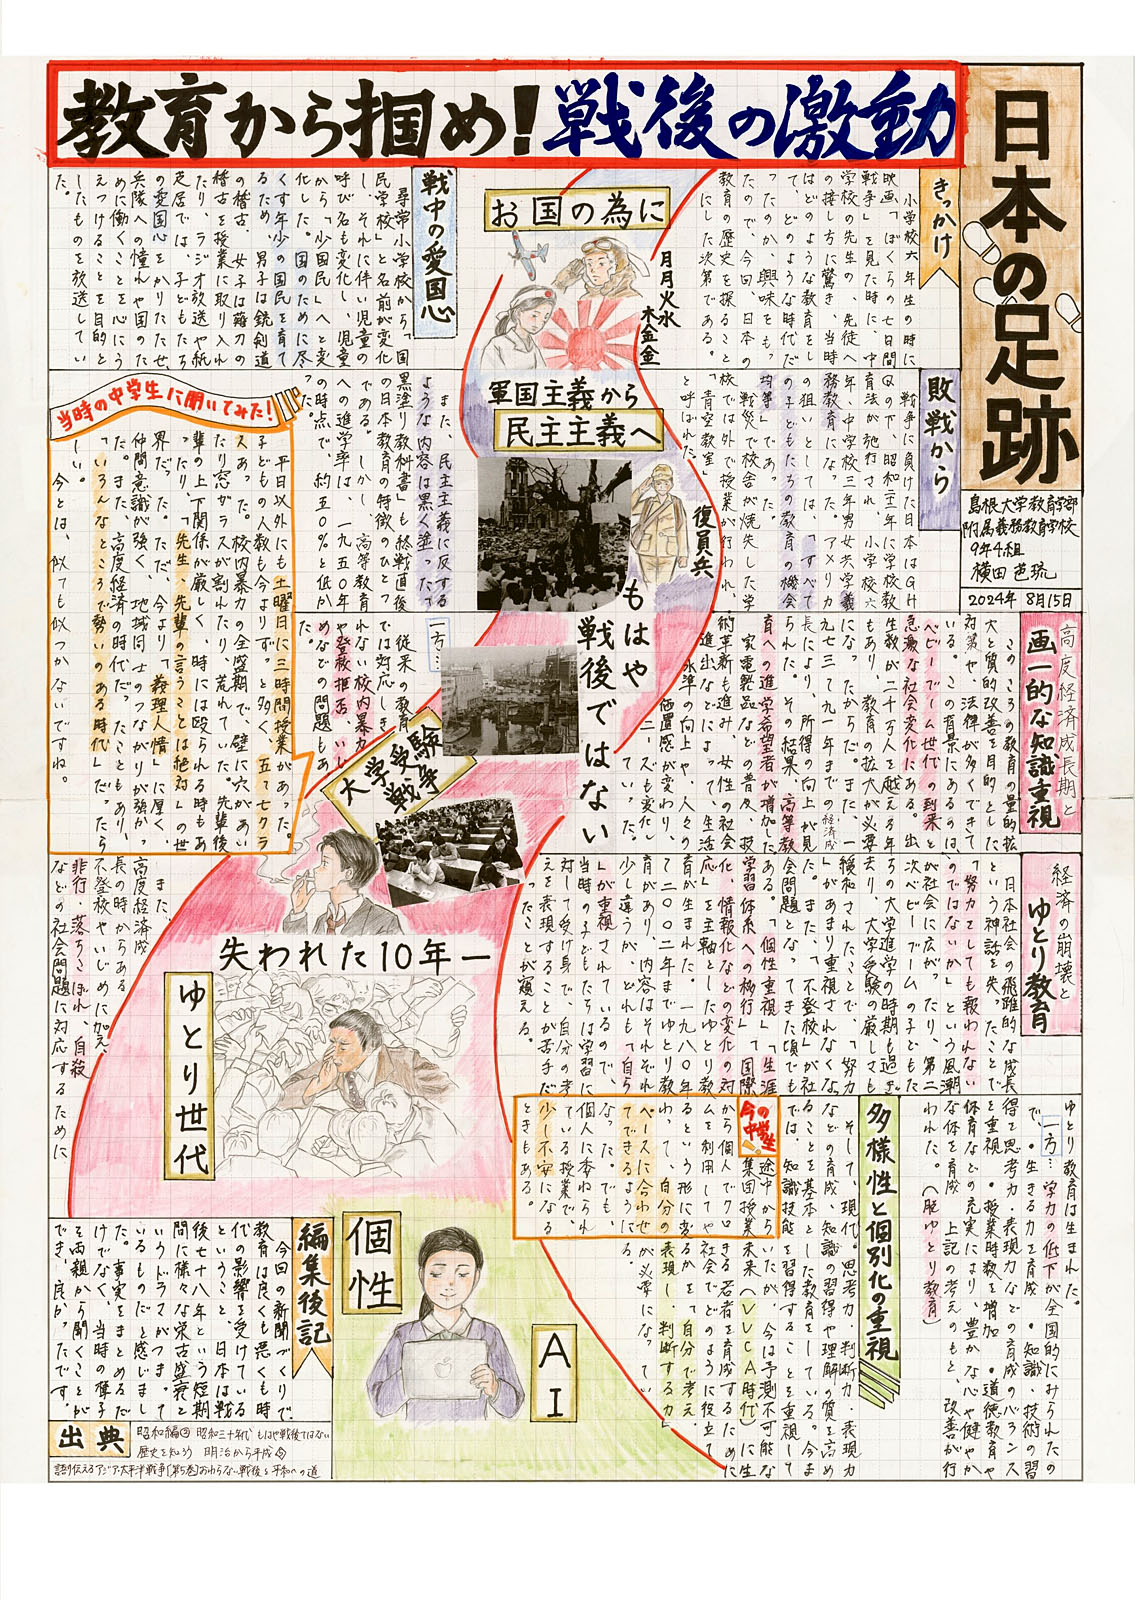 教育から掴め!戦後の激動
日本の足跡
島根大学教育学部
附属義務教育学校
9年4組
2024年 8月15日
きっかけ
小学校六年生の時に
映画「ぼくらの七日間
戦争」を見た時に、中
学校の先生の、生徒へ
の接し方に驚き、当時
はどのような教育をし
て、どのような時代だ
ったのか、興味をもっ
たので、今回、日本の
教育の歴史を探ること
にした次第である。
敗戦から
戦争に負けた日本はGH
Qの下、昭和二二年に学校教
育法が施行され、小学校六
年、中学校三年男女共学義
務教育になった。アメリカ
の狙いとしては、「すべて
の子どもたちの教育の機会
均等」であった。
戦災で校舎が焼失した学
校では外で授業が行われ、
「青空教室」
と呼ばれた。
また、民主主義に反する
ような内容は黒く塗った「
黒塗り教科書」も終戦直後
の日本教育の特徴のひとつ
である。しかし、高等教育
への進学率は、一九五〇年
の時点で、約五〇%と低か
戦中の愛国心
尋常小学校から「国
民学校」と名前が変化
し、それに伴い児童の
呼び名も変化し、児童
から「少国民」へと変
化した。国のために尽
くす年少の国民を育て
るため、男子は銃剣道
の稽古、女子は薙刀の
稽古を授業に取り入れ
たり、ラジオ放送や紙
芝居では、子どもたち
の愛国心をかりたたせ、
兵隊への憧れや国のた
めに働くことを心にう
えつけることを目的と
したものを放送してい
た。
お国の為に
月月火水
木金金
軍国主義から
民主主義へ
復員兵
もはや
戦後ではない
大学受験
戦争
失われた10年ー
ゆとり世代
個性
AI
当時の中学生に聞いてみた!
平日以外にも土曜日に三時間授業があった。
子どもの人数も今よりず〜と多く、五〜七クラ
スあった。校内暴力の全盛期で、壁に穴があい
たり窓ガラスが割れたり、荒れていた。先輩後
輩の上下関係が厳しく、時には殴られる時もあ
ったり、「先生、先輩の言うことは絶対」の世
界だった。ただ、今より「義理人情」に厚く、
仲間意識が強く、地域同士のつながりが強かっ
た。また、高度経済の時代だったこともあり、
「いろんなところで勢いのある時代」だったら
しい。
今とは、似ても似つかないですね。
高度経済成長期と
画一的な知識重視
このころの教育の量的拡
大と質的改善を目的とした
対策や、法律が多くできて
いる。この背景にあるのは、
ベビーブーム世代の到来と
急激な社会変化にある。出
生数が二百万人を越える年
もあり、教育の拡大が必要
になったからだ。また、一
九七三〜一九九一年までの経済成
長により、所得の向上が見
られた。その結果、高等教
育への進学希望者が増加した。
家電製品などの普及、技
術革新も進み、女性の社会
進出などによって、生活
水準の向上や、人々の
価値感が変わり、
ニーズも変化し
ていった。
一方…
従来の教育
では対応しき
れない校内暴力
や登校拒否、いじ
めなどの問題もあ
経済の崩壊と
ゆとり教育
日本社会の飛躍的な成長
という神話を失ったことで
「努力をしても報われない
のではないか」という風潮
が社会に広がったり、第二
次ベビーブームの子どもた
ちの大学進学の時期も過ぎ
去り、大学受験の厳しさも
緩和されたことで、「努力
」があまり重視されなくな
った。また、「不登校」が社
会問題となってきた頃でも
ある。「個性重視」「生涯
学習体系への移行」「国際
化、情報化などの変化の対
応」を主軸としたゆとり教
育が生まれた。一九八〇年
〜二〇〇二年までゆとり教
育があり、内容はそれぞれ
少し違うが、どれも「自ら
」が重視されているので、
当時の子どもたちは学習に
対して受け身で、自分の考
えを表現することが苦手だ
ったことが窺える。
また、
高度経済成
長の時からある
不登校やいじめに加え、
非行、落ちこぼれ、自殺
などの社会問題に対応するために
ゆとり教育は生まれた。
一方…学力の低下が全国的にみられたの
で、・生きる力を育成・知識・技術の習
得と思考力・表現力などの育成のバランス
を重視・授業時数を増加・道徳教育や
体育などの充実により、豊かな心や健やか
な体を育成 上記の考えのもと、改善が行
われた。(脱ゆとり教育)
多様性と個別化の重視
そして、現代。思考力・判断力・表現力
などの育成、知識の習得や理解の質を高め
ることを基本とした教育をしている。今ま
では、知識技能を習得することを重視して
いたが、今は予測不可能な
未来(VUCA時代)に生
きる若者を育成するために
社会でどのように役立て
るかを「自分で考え
表現し、判断する力」
が必要になってい
る。
今の中学生
途中から
集団授業
から個人でクロ
ムを利用してや
るという形に変
わって、自分の
ペースに合わせ
てできるように
なった。でも、
個人に委ねられ
ている授業で、
少し不安になる
ときもある。
編集後記
今回の新聞づくりで、
教育は良くも悪くも時
代の影響を受けている
ということ、日本は戦
後七十八年という短期
間に様々な栄古盛衰と
いうドラマがつまって
いるものだと感じまし
た。事実をまとめるだ
けでなく、当時の様子
を両親から聞くことが
でき、良かったです。
出典
昭和編③ 昭和三十年代 もはや戦後ではない
歴史を知ろう 明治から平成
語り伝えるアジア・太平洋戦争[第5巻]おわらない戦後と平和への道